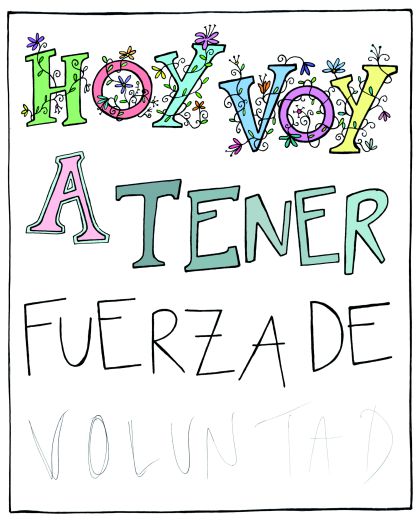 HOY VOY
A TENER
FUERZA DE
VOLUNTAD